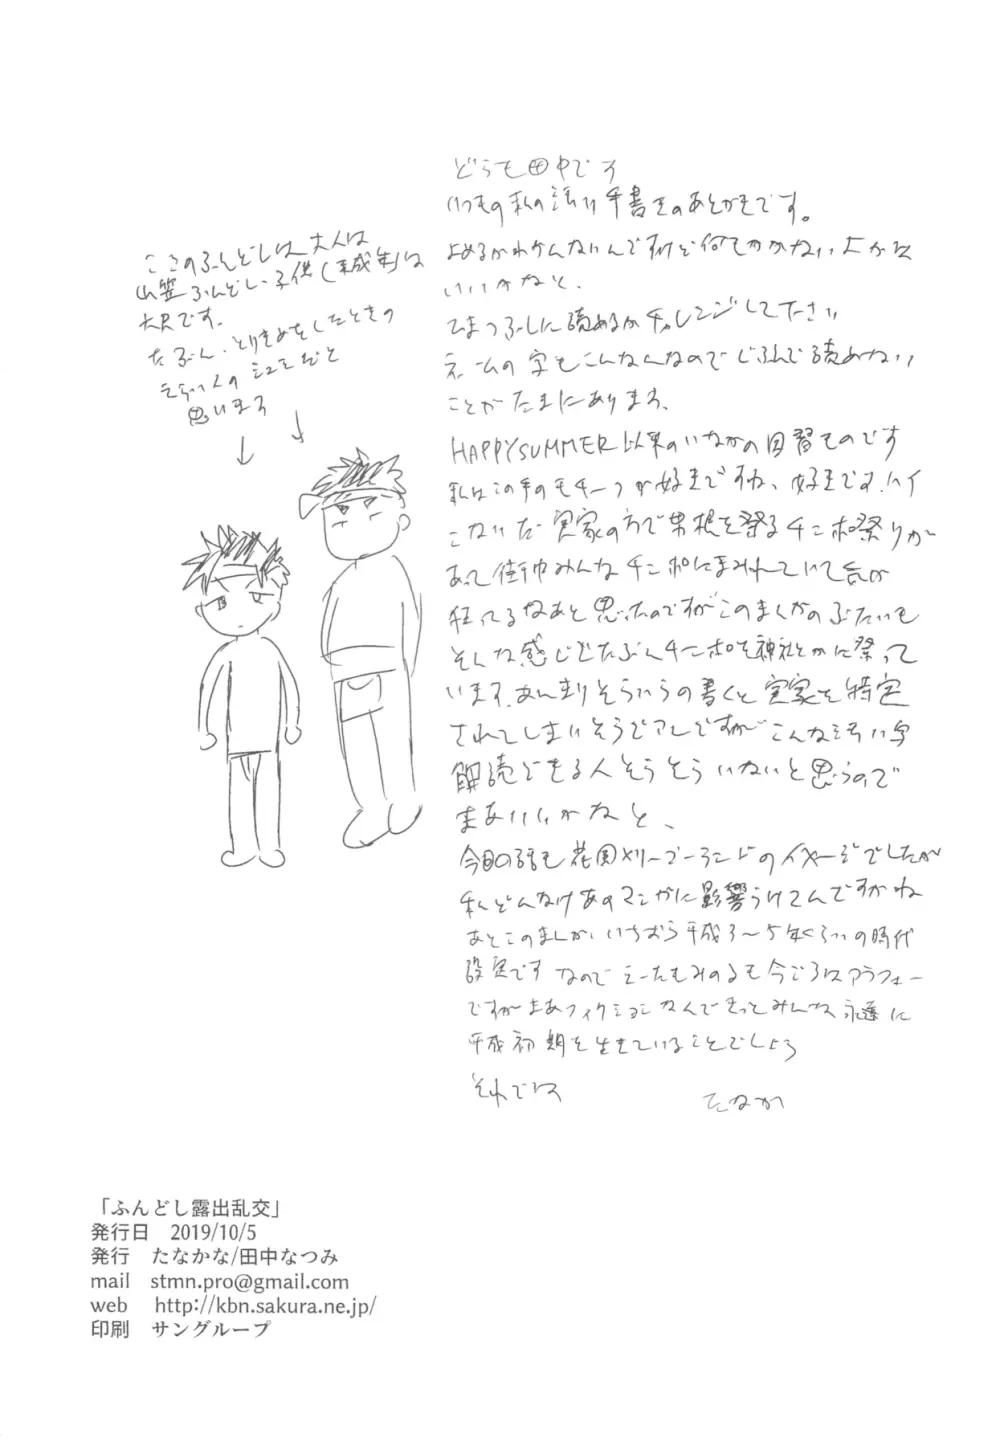 ここのふんどしは大人は
山笠ふんどし、子供(未成年)は
六尺です。
たぶん、とりきめをしたときの
の
だと
思います
どうも田中です
いつもの私の汚い手書きのあとがきです。
よめるかわかんないんですけど何でかかない、よかは
いいかなと、
ひまつぶしに読めるかチャレンジしてください
ネームの字もこんなんなのでじぶんで読めない
ことがたまにあります、
HAPPYSUMMER以来のいなかの因習ものです
私はこの手のモチーフが好きですね、好きです。ハイ
こないだ実家の方で男根を祭るチンポ祭りが
あって街中みんなチンポにまみれていて気が
狂ってるなあと思ったのですがこのまんがのぶたいも
そんな感じでたぶんチンポを神社とかに祭って
います、あんまりそういうの書くと実家を特定
されてしまいそうでアレですがこんな汚い字
解読できる人そうそういないと思うので
まあいいかなと、
今回の話も花園メリーゴーランドのイメージでしたが
私どんだけあのマンガに影響うけてんですかね
あとこのまんが、いちおう平成3〜5年くらいの時代
設定です なのでみのるも今ごろはアラフォー
ですがまあフィクションなんできっとみんな永遠に
平成初期を生きていることでしょう
それでは
たなか
「ふんどし露出乱交」
発行日 2019/10/5
発行 たなかな/田中なつみ
mail stmn.pro@gmail.com
web http://kbn.sakura.ne.jp/
印刷 サングループ